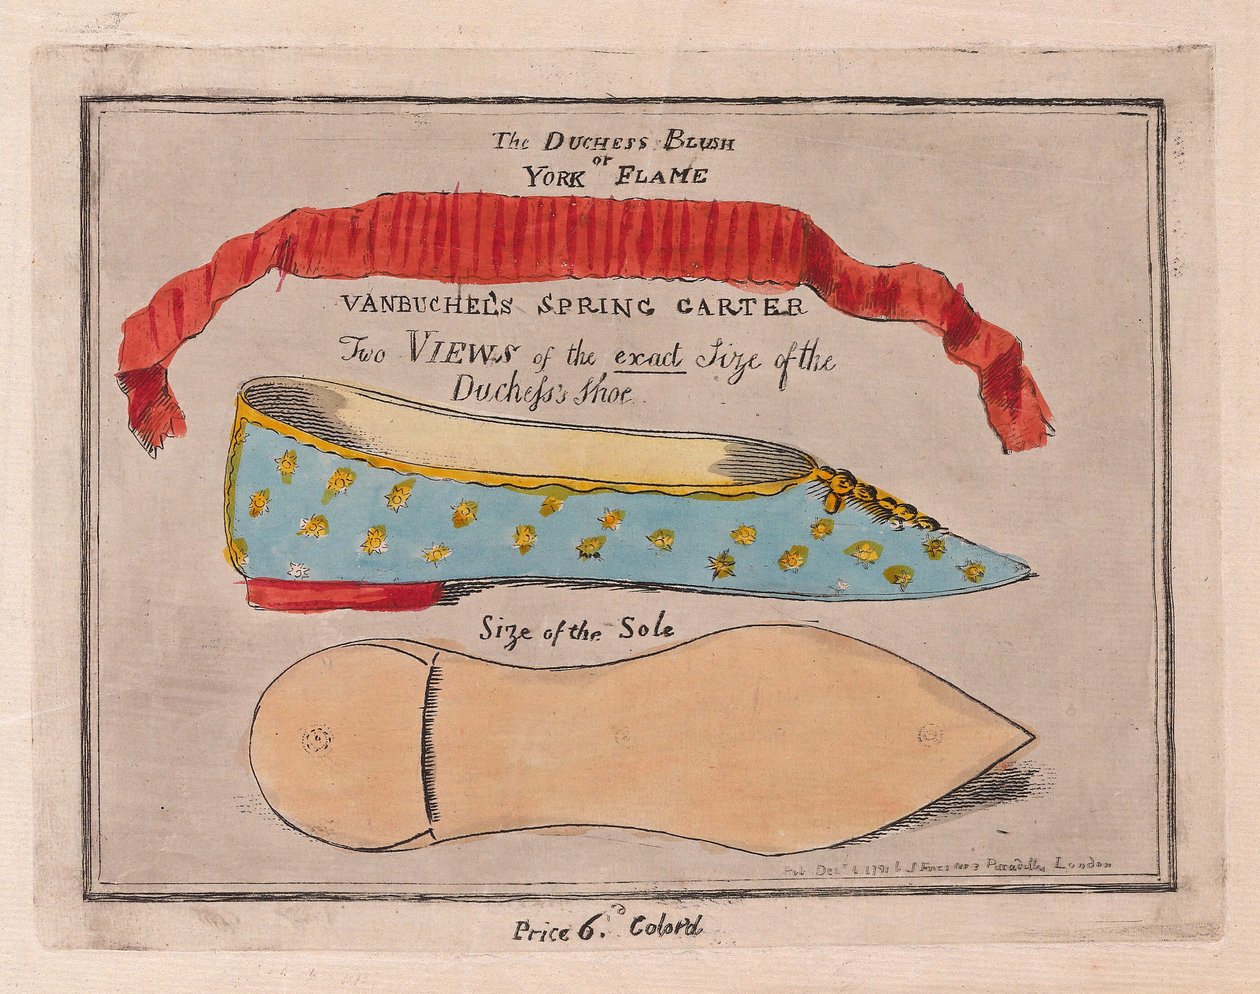 The DUCHESS BLUSH
or
YORK FLAME
VANBUCHEL'S SPRING GARTER
Two VIEWS of the exact Size of the
Duchess's Shoe
Size of the Sole
Pub Dec 1791 Fores No 3 Piccadilly London
Price 6.d Colord